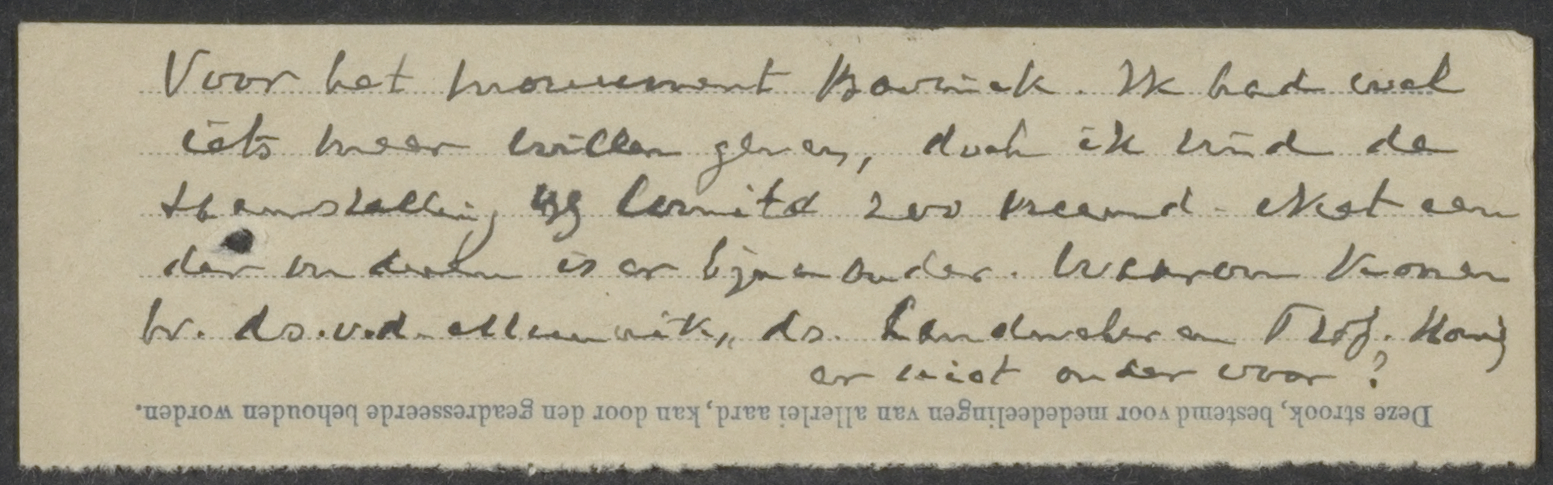 Voor het monument Bavinck. Ik had wel
iets meer willen geven, doch ik vind de
samenstelling comité zoo vreemd. Niet een
der ouderen is er bijna onder. Waarom komen
bv. ds. v.d. ds. Landwehr en Prof. Honig
er niet onder voor?
Deze strook, bestemd voor mededeelingen van allerlei aard, kan door den geadresseerde behouden worden.